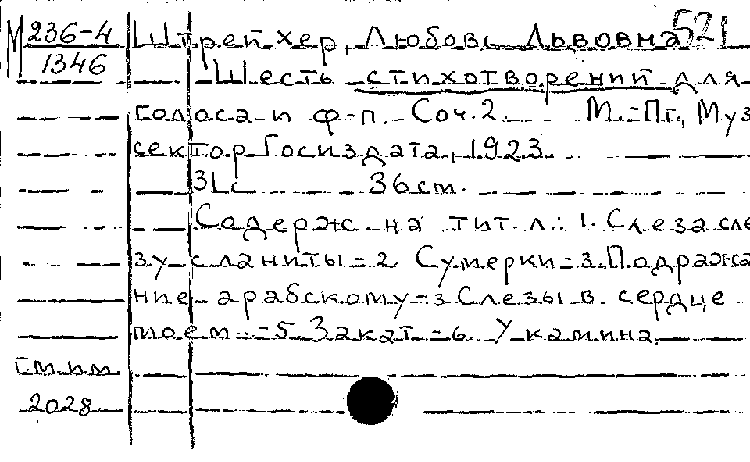 М 236-4 Штрейхер, Любовь Львовна 521
1346 Шесть стихотворений для
голоса и ф-п. Соч. 2. М.-Пг., Муз
сектор Госиздата, 1923.
31с 36 см.
Содерж. на тит. л.: 1. Слеза сле
зу с ланиты - 2. Сумерки - 3. Подража
ние арабскому - 3 Слезы в сердце
моем - 5 Закат - 6. У камина.
гмпм
2028